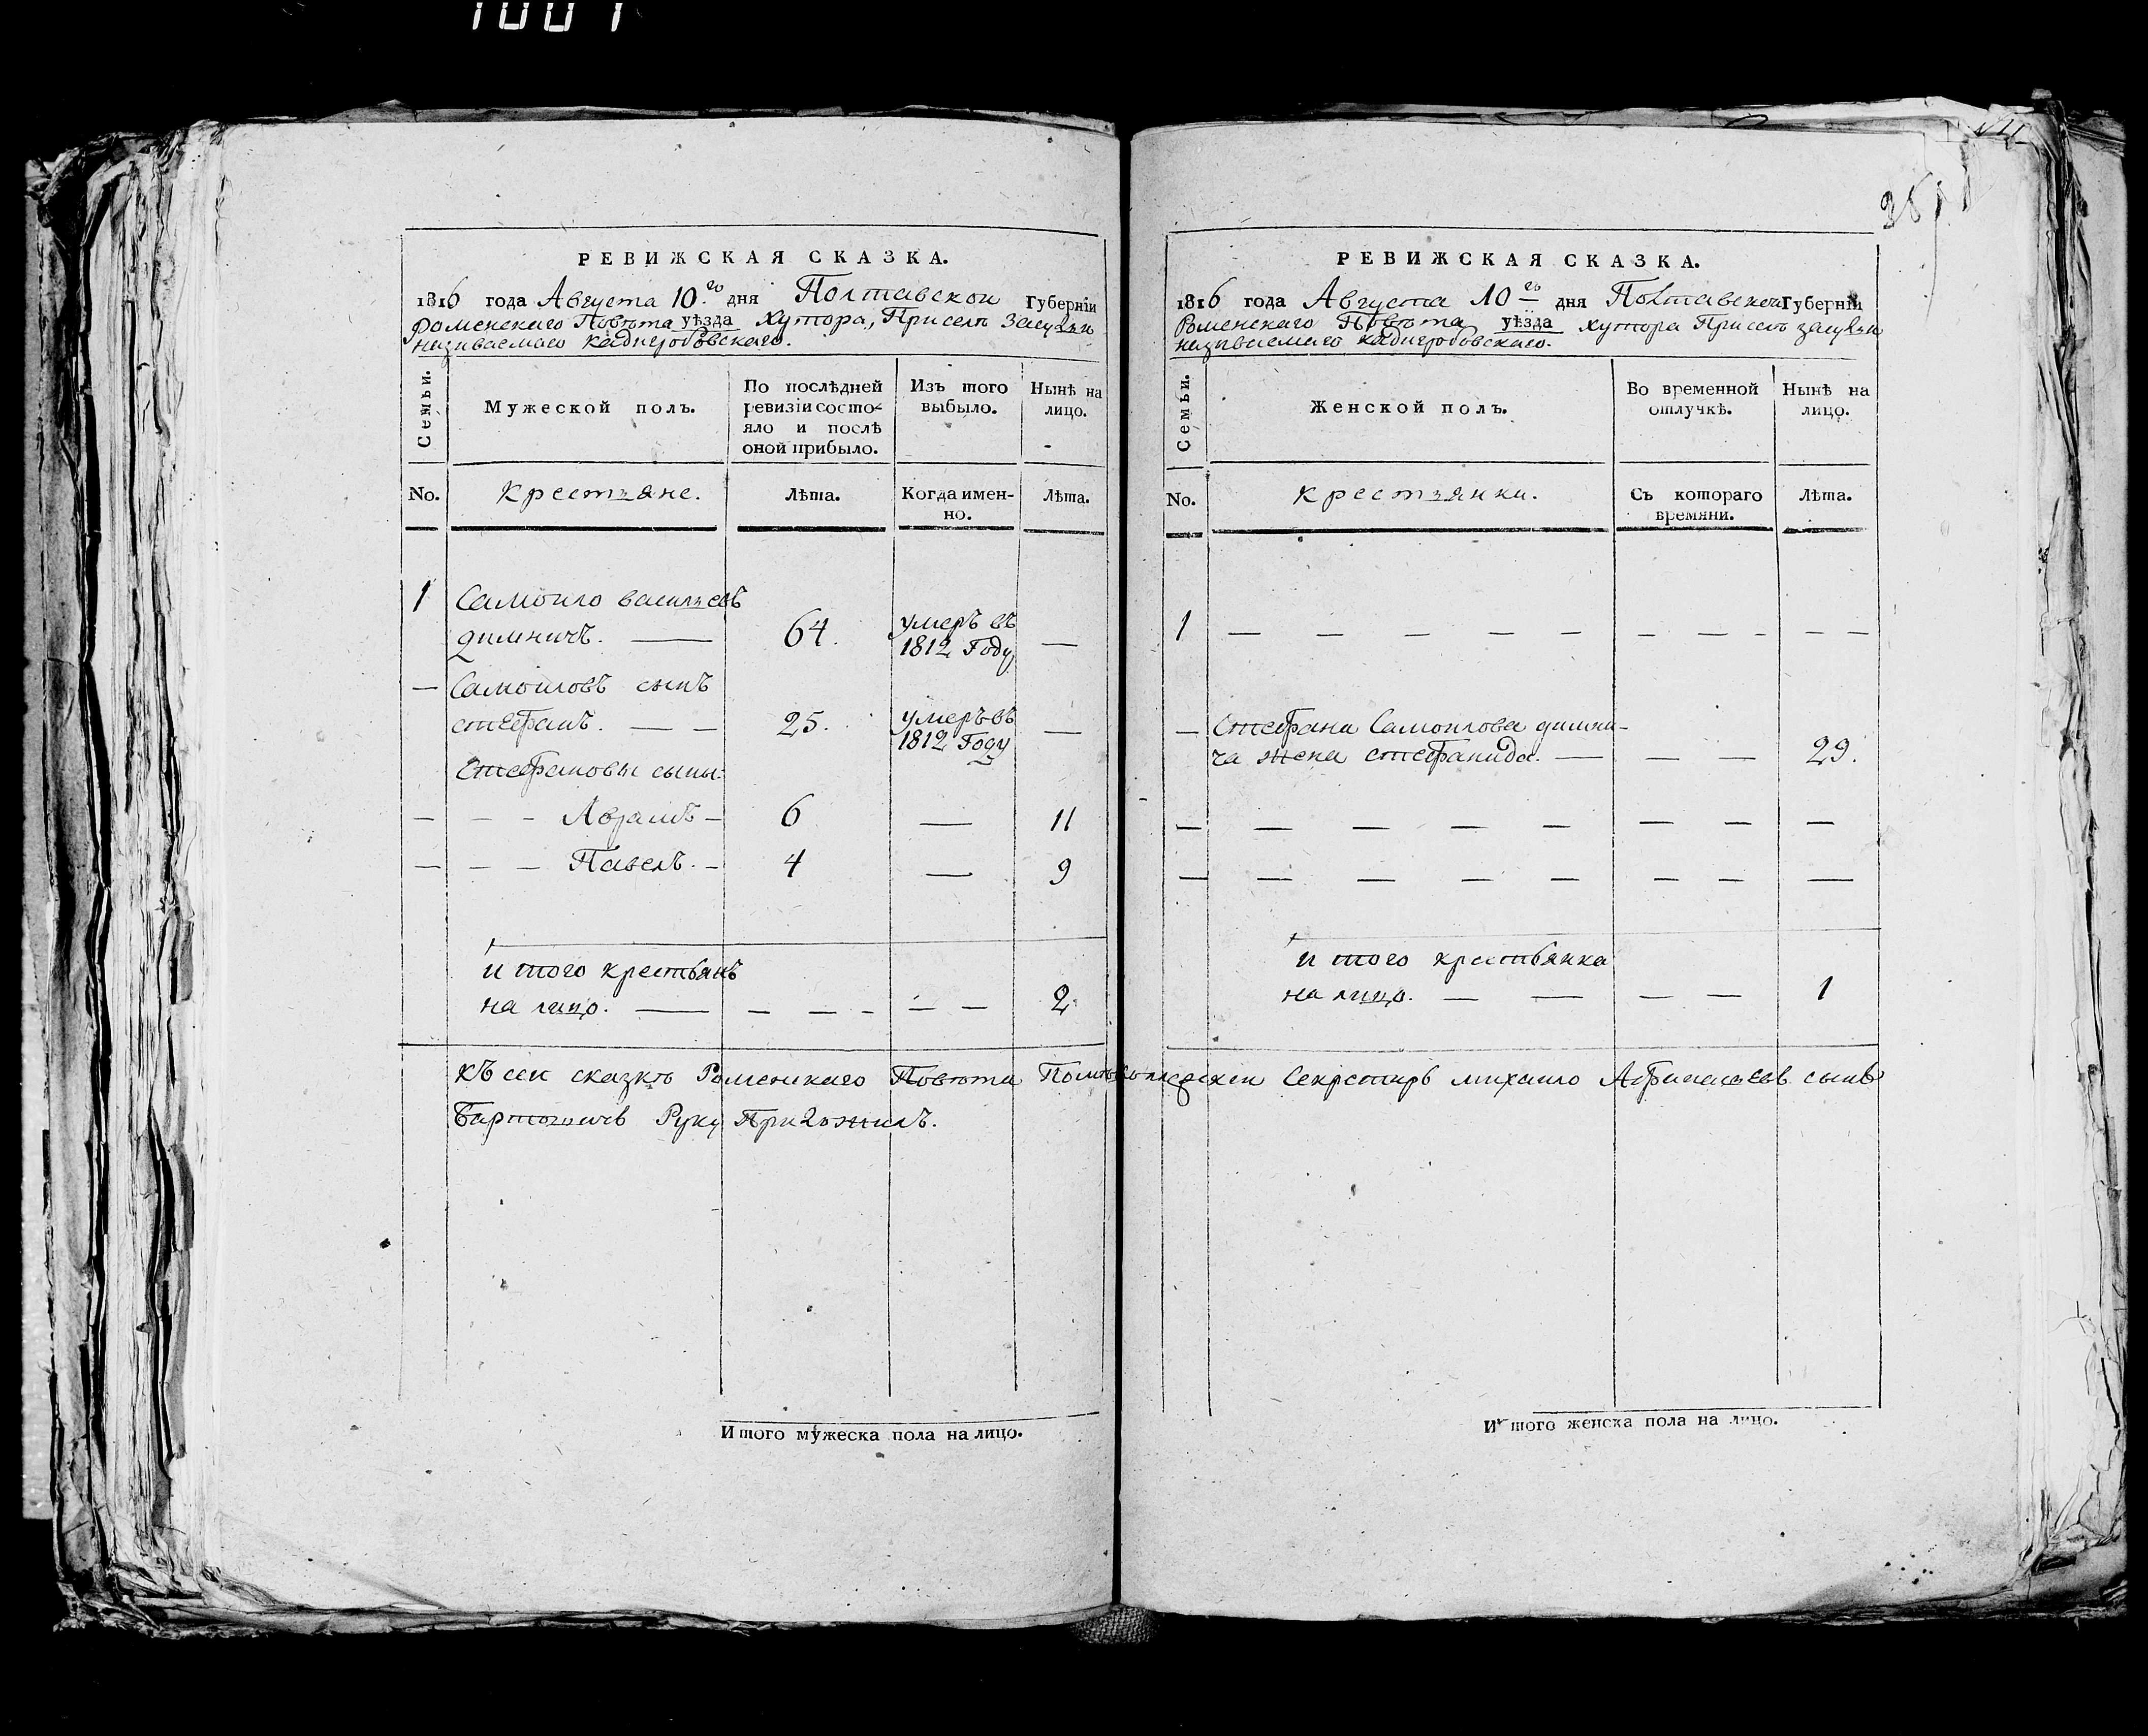 1001
РЕВИЖСКАЯ СКАЗКА.
1816 года Августа 10.го дня Полтавской Губернїи
Роменскаго Повѣта уѣзда Хутора, При селѣ Засулки
називаемаго
Семьи.
Мужеской полъ.
По послѣдней ревизїи состояло и послѣ оной прибыло.
Изъ того выбыло.
Нынѣ на лицо.
No.
Крестьяне.
Лѣта.
Когда именно.
Лѣта.
1 Самойло васильевъ
димничъ. 64. умеръ въ 1812 Году
Самойловъ сынъ
стефанъ. 25. умеръ въ 1812 Году
Стефановы сыны:
Аврамъ 6 11
Павелъ. 4 9
и того крестьянъ
на лицо. 2
Къ сей сказкѣ Роменскаго Повѣта
Руку Приложилъ.
И того мужеска пола на лицо.
РЕВИЖСКАЯ СКАЗКА.
1816 года Августа 10го дня Полтавской Губернїи
Роменскаго Повѣта уѣзда хутора При селѣ засулки
називаемаго
Семьи.
Женской полъ.
Во временной отлучкѣ.
Нынѣ на лицо.
No.
Крестьянки.
Съ котораго времяни.
Лѣта.
1
Стефана Самойлова димни-
ча жена стефанида. 29.
и того крестьянка
на лицо. 1
Секретарь михайло Афанасьевъ сынъ
И того женска пола на лицо.